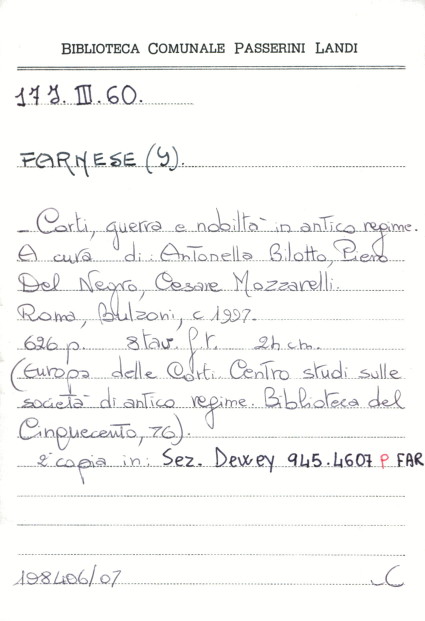 BIBLIOTECA COMUNALE PASSERINI LANDI
17J. III. 60.
FARNESE (I).
- Corti, guerra e nobiltà in antico regime.
A cura di: Antonella Bilotto, Piero
Del Negro, Cesare Mozzarelli.
Roma, Bulzoni, c 1997.
626 p. 8 tav. f.t. 24 cm.
(Europa delle Corti. Centro studi sulle
società di antico regime. Biblioteca del
Cinquecento, 76).
2ª copia in: Sez. Dewey 945.4607 P FAR
198406/07
C